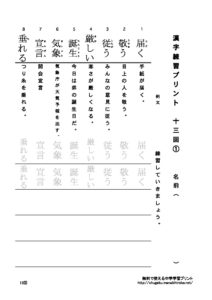 漢字練習プリント 十三回① 名前（　　）
例文
練習していきましょう。
1 届く 手紙が届く。 届く 届く
2 敬う 目上の人を敬う。 敬う 敬う
3 従う みんなの意見に従う。 従う 従う
4 厳しい 寒さが厳しくなる。 厳しい 厳しい
5 誕生 今日は弟の誕生日だ。 誕生 誕生
6 気象 気象庁が天気予報を出す。 気象 気象
7 宣言 開会宣言 宣言 宣言
8 垂れる つり糸を垂れる。 垂れる 垂れる
無料で使える中学学習プリント